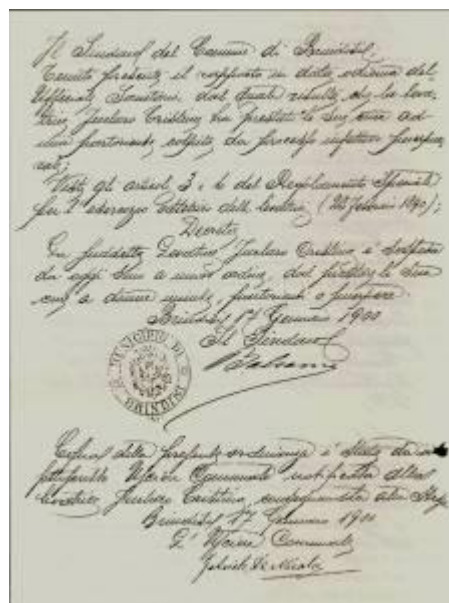 Il Sindaco del Comune di Brindisi,
Tenuto presente il rapporto in data odierna del
Ufficiale Sanitario, dal quale risulta che la leva
trice Cristina ha prestato le sue cure ad
una partoriente colpita da processo infettivo puerpe
rale;
Visti gli articoli 3 e 6 del Regolamento Speciale
per l' esercizio ostetrico delle levatrici (23 Febbraio 1890);
Decreta
La suddetta Levatrice Cristina è sospesa
da oggi sino a nuovo ordine, dal prestare le sue
cure a donne partorienti o puerpere.
Brindisi 17 Gennaio 1900
Il Sindaco
Balsamo
MUNICIPIO DI BRINDISI
Copia della presente ordinanza è stata da me
sottoscritto Usciere Comunale notificata alla
levatrice Cristina, consegnandola alla stessa
Brindisi 17 Gennaio 1900
L' Usciere Comunale